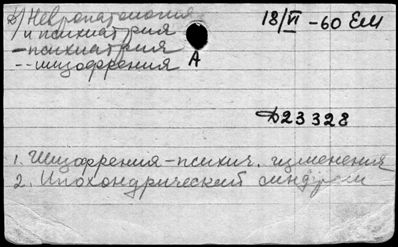 5) Невропатология 18/VI -60 Ем
и психиатрия
-психиатрия
--шизофрения А
Д23328
1. Шизофрения-психич. изменения
2. Ипохондрический синдром